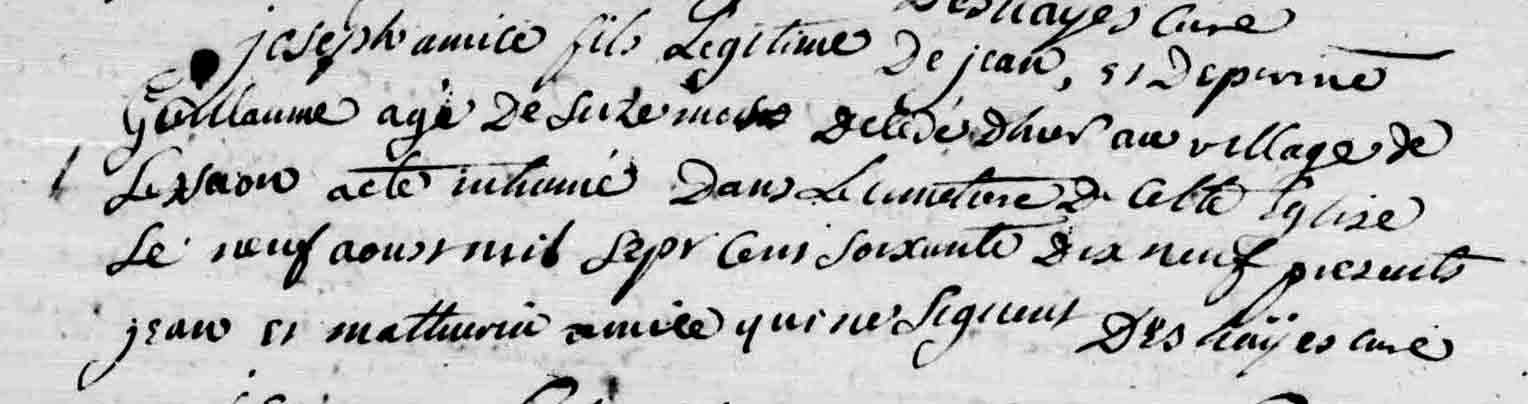 Deshayes curé
joseph amice fils Legitime De jean, et De perrine
Guillaume agé De seize mois Decedé Dhier au village de
a eté inhumé Dans Le cimetiere De cette Eglise
Le neuf aoust mil sept cent soixante Dix neuf presents
jean et mathurin amice qui ne signent Deshayes curé